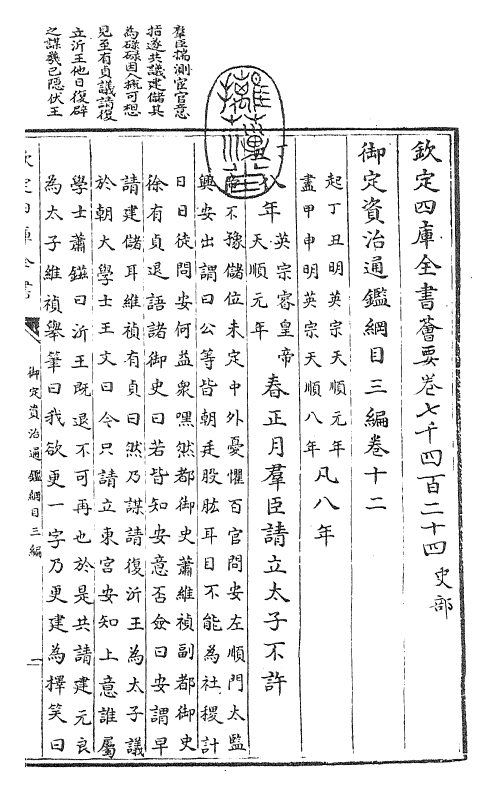 欽定四庫全書薈要卷七千四百二十四史部
御定資治通鑑綱目三編卷十二
起丁丑明英宗天順元年
盡甲申明英宗天順八年
凡八年
丁丑年
英宗睿皇帝
天順元年
春正月羣臣請立太子不許
帝不豫儲位未定中外憂懼百官問安左順門太監
興安出謂曰公等皆朝廷股肱耳目不能為社稷計
日日徒問安何益衆嘿然都御史蕭維禎副都御史
徐有貞退語諸御史曰若皆知安意否僉曰安謂早
請建儲耳維禎有貞曰然乃謀請復沂王為太子議
於朝大學士王文曰今只請立東宮安知上意誰屬
學士蕭鎡曰沂王既退不可再也於是共請建元良
為太子維禎舉筆曰我欲更一字乃更建為擇笑曰
羣臣揣測宦官意
指遂共議建儲其
為碌碌因人概可想
見至有貞議請復
立沂王他日復辟
之謀幾已隱伏王
欽定四庫全書
御定資治通鑑綱目三編
一